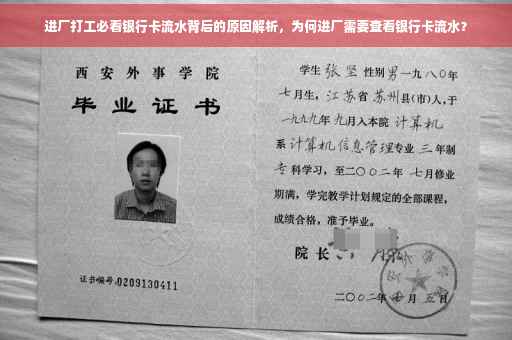 进厂打工必看银行卡流水背后的原因解析，为何进厂需要查看银行卡流水？
西安外事学院
毕业证书
证书编号:0209130411
学生 张坚 性别男一九八〇年
七月生，江苏省苏州县(市)人,于
一九九九年九月入本院 计算机
系计算机信息管理专业 三年制
专科学习，至二〇〇二年 七月修业
期满，学完教学计划规定的全部课程，
成绩合格，准予毕业。
院长
二〇〇二年 七月 五日